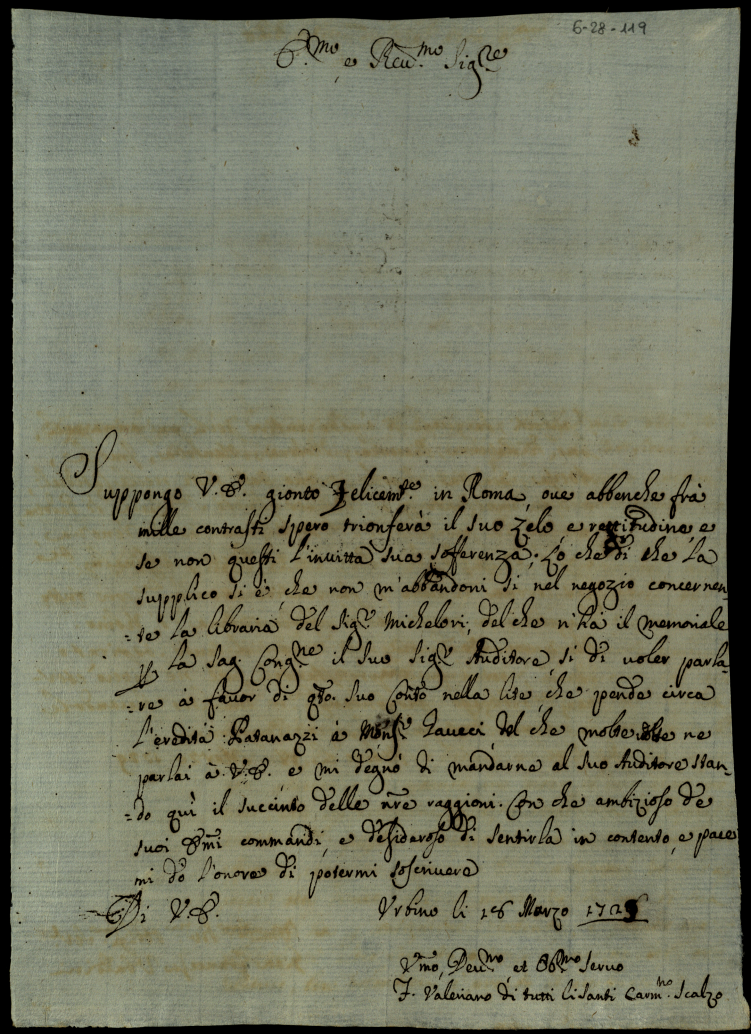 6-28-119
E.mo e Reu.mo Sig.re
Suppongo V.E. gionto felicem.te in Roma, oue abbenche frà
mille contrasti spero trionferà il suo zelo e rettitudine, e
se non questi l'inuitta sua sofferenza; Lo che di che La
supplico si è, che non m'abbandoni sì nel negozio concernen-
-te La libraria del Sig.r Michelori, del che n'hà il memoriale
p La Sag. Cong.ne il Suo Sig.r Auditore, sì di uoler parla-
-re à fauor di q.to Suo Con.to nella lite che pende circa
l'eredità Patanazzi è Mons.r, del che molte uolte ne
parlai à V.E. e mi degnò di mandarne al Suo Auditore stan-
-do quì il succinto delle n.re raggioni. Con che ambizioso de
suoi E.mi commandi, e desideroso di sentirla in contento, e pace
mi dò l'onore di potermi soscriuere
Di V.E. Vrbino li 16 Marzo 172
V.mo, Deu.mo, et Obb.mo seruo
F. Valeriano di tutti li Santi Carm.no Scalzo